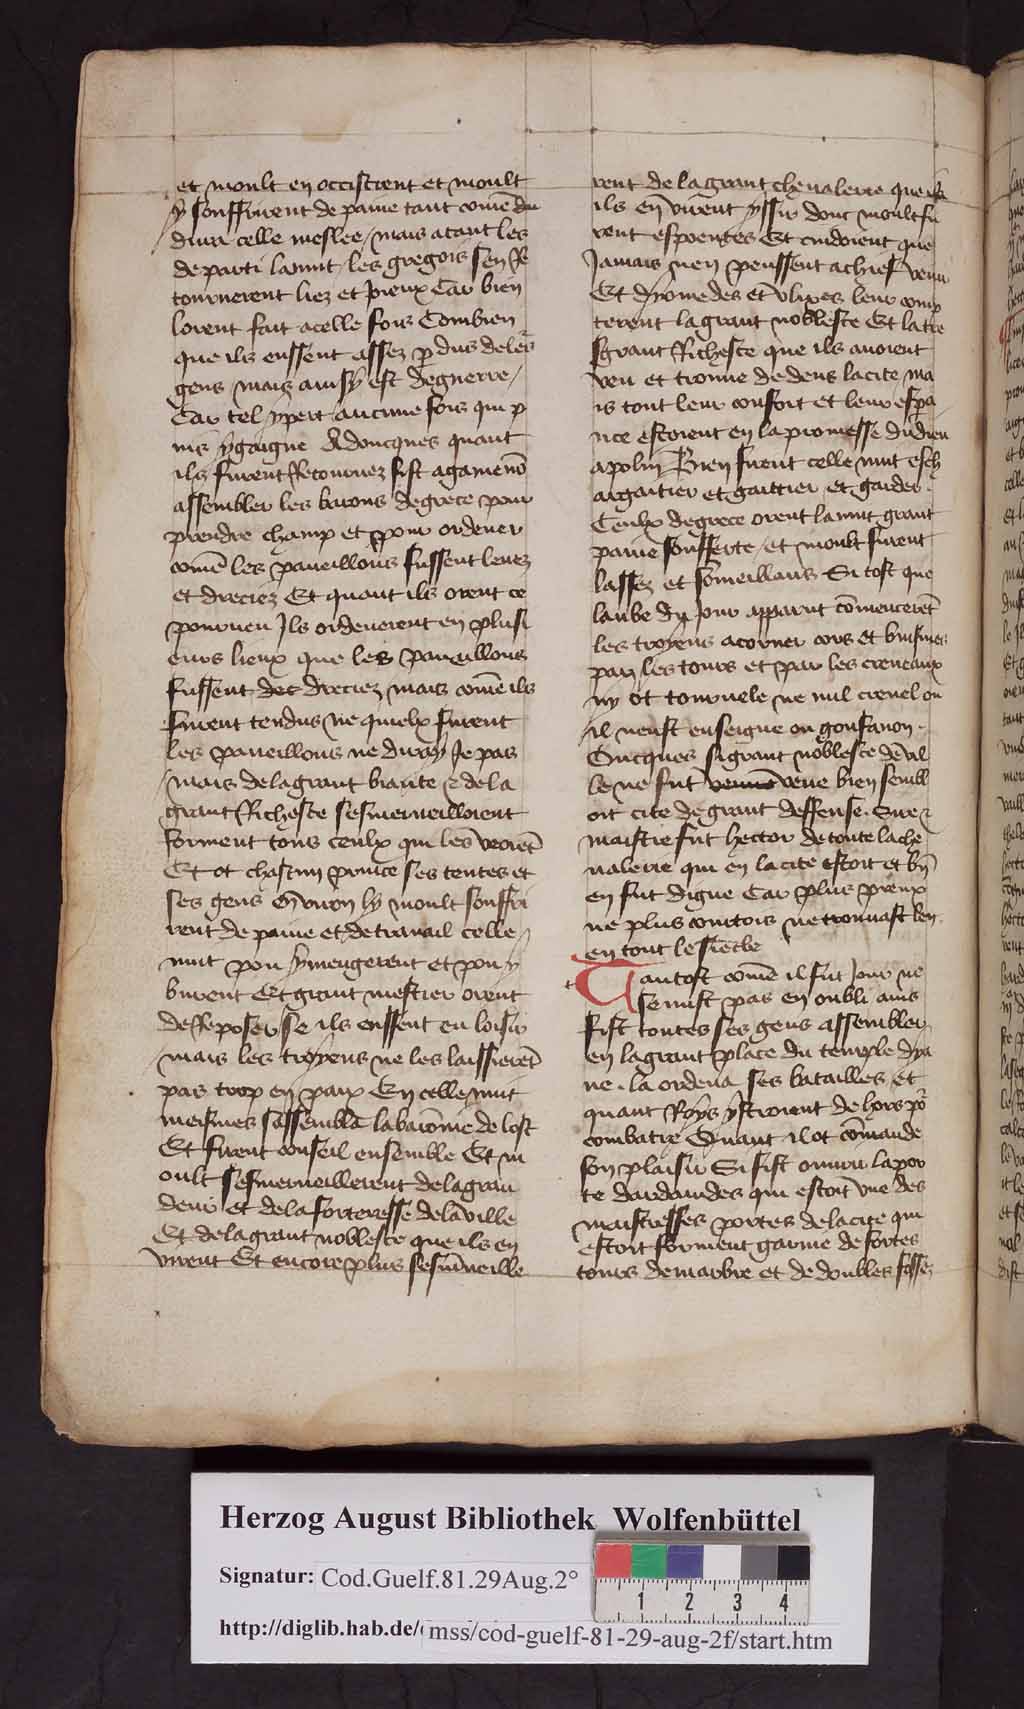 et moult en occistrent et moult
y souffrirent de paine tant come du
dura celle meslee / mais atant les
departi la nuit / les gregois sen re
tournerent liez et ioieux Car bien
lorent fait a celle fois Combien
que ilz eussent assez p̄dus de leꝰs
gens maiz ainsy est de guerre /
Car tel y pert aucune fois qui p
uis y gaigne Adoncques quant
ils furent Retournez fist agamenō
assembler les barons de grece pour
prendre champ et pour ordener
comē les paueillons fussent leuez
et dreciez Et quant ils orent ce
pourueu Ils ordenerent en plusi
eurs lieux que les paueillons
fussent dreciez maiz comē ils
furent tendus ne quielx furent
les paueillons ne diray Ie pas
mais de la grant biaute et de la
grant Richesce sesmerueilloient
forment tous ceulx qui les veoiēt
Et ot chascun prince ses tentes et
ses gens enuiron ly moult souffri
rent de paine et de trauail celle
nuit pou y mengerent et pou y
burent Et grant mestier orent
de Reposer se ils eussent eu loisir
mais les troyens ne les laissierēt
pas trop en paix En celle nuit
meismes sassembla la baronnie de lost
Et furent conseil ensemble Et m
oult sesmerueillerent de la gran
deur et de la forteresse de la ville
Et de la grant noblesce que ils en
virent Et encore plus sesmūeille
rent de la grant cheualerie que
ils en virent yssir dont moult fu
rent espoentes Et cuidoient que
Iamais nen peussent a chief venir
Et dyomedes et vlixes leur comp
terent la grant noblesce Et la tre
sgrant Richesce que ils auoient
veu et trouue dedens la cite ma
is tout leur confort et leur espa
nce estoient en la promesse du dieu
apolin Bien furent celle nuit esch
argaitier et gaittier et garder.
Ceulx de grece orent la nuit grant
paine soufferte / et moult furent
lassez et someillans Si tost que
laube du Iour apparut cōmencerēt
les troyens a corner cors et buisines
par les tours et par les creneaux
ny ot tournele ne nul crenel ou
il neust enseigne ou gonfanon.
Oncques si grant noblesce de val
le ne fut veue bien sembl
oit cite de grant deffense. Sire et
maistre fut hector de toute la che
ualerie qui en la cite estoit et bn̄
en fut digne Car plus preux
ne plus courtois ne trouuast len
en tout le siecle
Tantost comē il fut Iour ne
se mist pas en oubli ains
fist toutes ses gens assembler
en la grant place du temple dya
ne. la ordena ses batailles et
quant Roys ystroient dehors pō
combatre Quant il ot cōmande
son plaisir Si fist ouurir la por
te dardanides qui estoit vne des
maistresses portes de la cite qui
estoit forment garnie de fortes
tours de marbre et de doubles fossez
Herzog August Bibliothek Wolfenbüttel
Signatur: Cod.Guelf.81.29Aug.2°
1 2 3 4
http://diglib.hab.de/mss/cod-guelf-81-29-aug-2f/start.htm